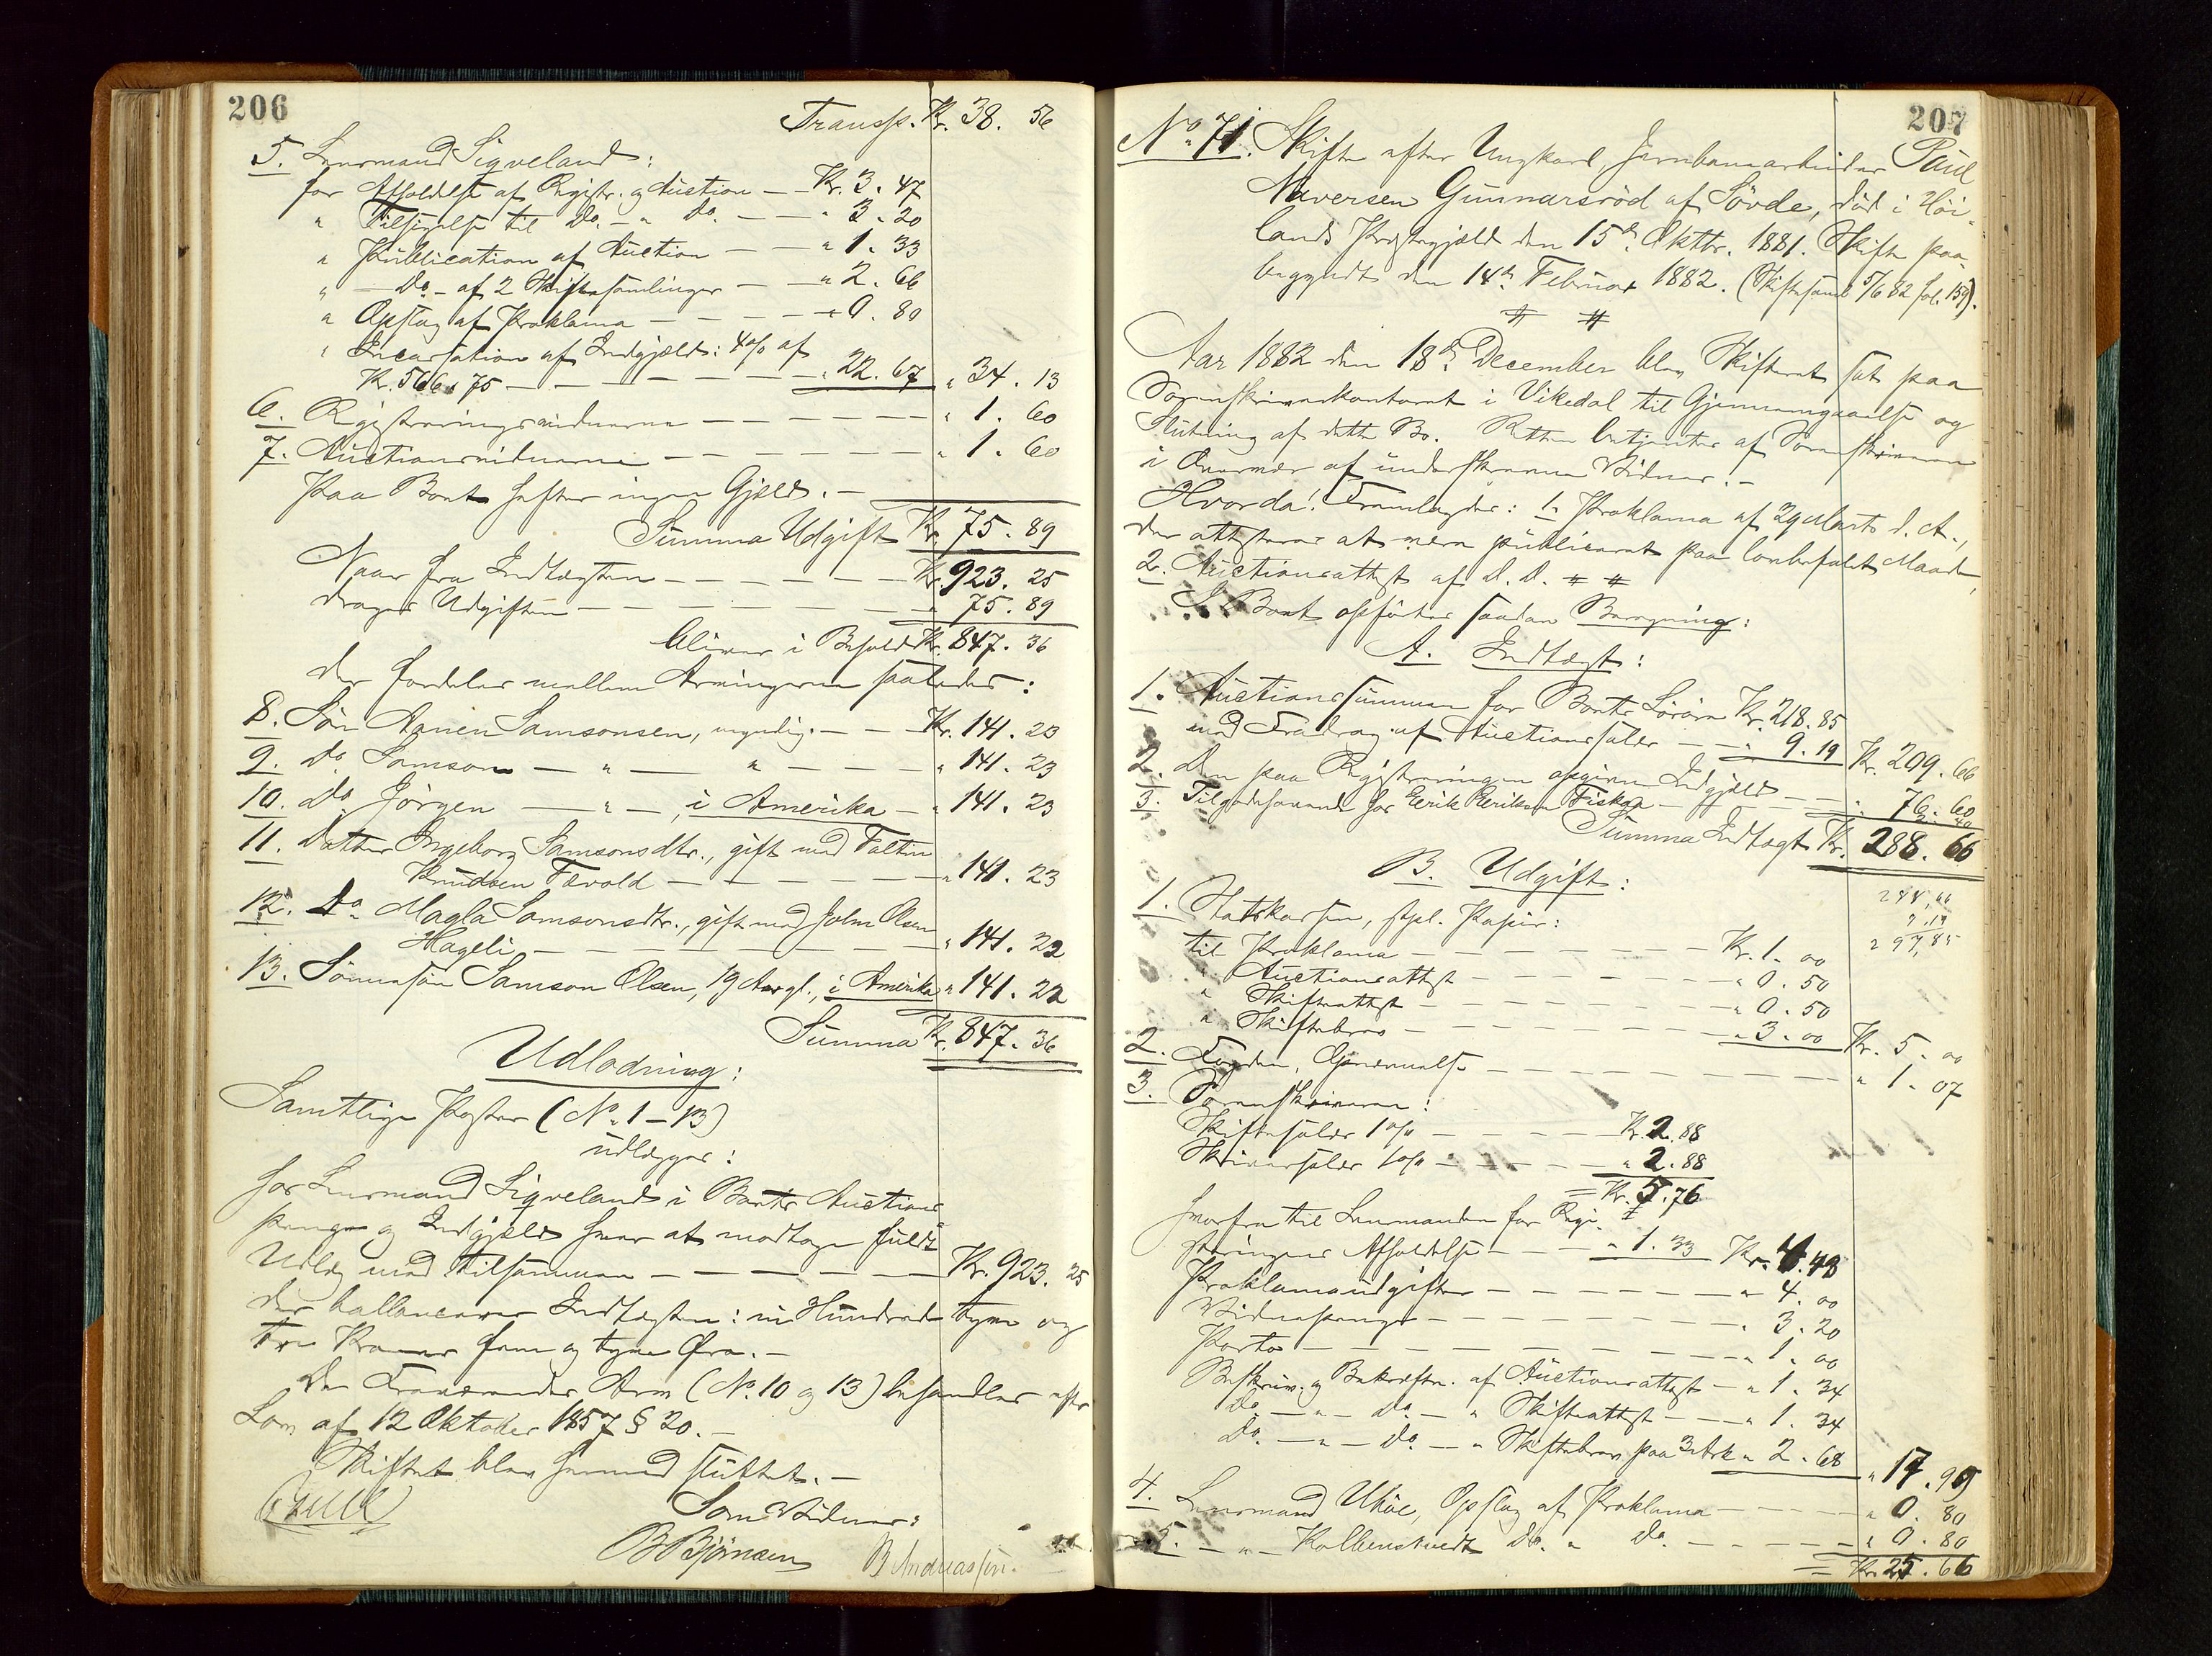 206
Transp. Kr. 38. 56
5. Lensmand Sigveland:
for Afholdelse af Registr. og Auction — Kr. 3. 47
" Tilsigelse til Do. — " Do. — — " 3. 20
" Publication af Auction — — " 1. 33
" — Do. — af 2 Skiftesamlinger — — " 2. 66
" Opslag af Proklama — — — — " 0. 80
" Incassation af Indgjæld: 4 % af
Kr. 566. 75 — — — — — " 22. 67 " 34. 13
6. Registreringsvidnerne — — — — — " 1. 60
7. Auctionsvidnerne — — — — — " 1. 60
Paa Boet hefter ingen Gjæld. —
Summa Udgift Kr. 75. 89
Naar fra Indtægten — — — — — Kr. 923. 25
drages Udgiften — — — — — " 75. 89
bliver i Behold Kr. 847. 36
der fordeles mellem Arvingerne saaledes:
8. Søn Aanen Samsonsen, myndig. — — Kr. 141. 23
9. do Samson — " — " — — — " 141. 23
10. do Jörgen — " —, i Amerika — " 141. 23
11. Datter Ingeborg Samsonsdtr., gift med Faltin
Knudsen Tævold — — — — — " 141. 23
12. Do Magla Samsonsdtr., gift med John Olsen
Hageli — — — — — — " 141. 22
13. Sönnesön Samson Olsen, 19 Aar gl., i Amerika " 141. 22
Summa Kr. 847. 36
Udlodning:
Samtlige Poster (No. 1 — 13)
udlægges:
hos Lensmand Sigveland i Boets Auctions-
penge og Indgjæld hver at modtage fuldt
Udlæg med tilsammen — — — — — Kr. 923. 25
der ballancerer Indtægten: ni Hundrede tyve og
tre Kroner fem og tyve Øre. —
De Fraværendes Arv (No. 10 og 13) behandles efter
Lov af 12 Oktober 1857 § 20. —
Skiftet blev hermed sluttet. —
Som Vidner:
B Björnsen B Andreassen.
207
No. 71. Skifte efter Ungkarl, Jernbanearbeider Paul
Iversen Gunnarsröd af Sövde, död i Höi-
lands Præstegjæld den 15de Oktbr. 1881. Skifte paa-
begyndt den 14de Februar 1882. (Skiftesaml. 5/6 82 fol. 159).
Aar 1882 den 18de December blev Skifteret sat paa
Sorenskriverkontoret i Vikedal til Gjennemgaaelse og
Slutning af dette Bo. Retten betjentes af Sorenskriveren
i Overvær af underskrevne Vidner. —
Hvorda! Fremlagdes: 1. Proklama af 29 Marts d. A.,
der attesteres at være publiceret paa lovbefalet Maade,
2. Auctionsattest af d. D.
I Boet opførtes saadan Beregning:
A. Indtægt:
1. Auctionssummen for Boets Løsøre Kr. 218. 85
med Fradrag af Auctionssalær — — " 9. 19 Kr. 209. 66
2. Den paa Registreringen opgivne Indgjæld — — " 76. 60
3. Tilgodehavende hos Eerik Eeriksen Fiskaa — — " 2. 40
Summa Indtægt Kr. 288. 66
B. Udgift:
288,66
9.19
297,85
1. Statskassen, stpl. Papir:
til Proklama — — — — — Kr. 1. 00
" Auctionsattest — — — — — " 0. 50
" Skifteattest — — — — — " 0. 50
" Skiftebrev — — — — — " 3. 00 Kr. 5. 00
2. Fogden, Opnævnelse — — — — — " 1. 07
3. Sorenskriveren:
Skiftesalær 1 % — — — Kr. 2. 88
Skriversalær 1 % — — — " 2. 88
= Kr. 5. 76
hvorfra til Lensmanden for Regi-
streringens Afholdelse — — " 1. 33 Kr. 4. 43
Proklamaudgifter — — — — — " 4. 00
Vidnepenge — — — — — " 3. 20
Porto — — — — — " 1. 00
Beskriv. og Bekræfte. af Auctionsattest — " 1. 34
Do. — " — do. — " Skifteattest — — " 1. 34
Do. — " — do. — " Skiftebrev paa 3 Ark " 2. 68 " 17. 99
4. Lensmand Uhöe, Opslag af Proklama — — — " 0. 80
5. — " — Kolbenstvedt Do. " do. — — — — " 0. 80
= Kr. 25. 66